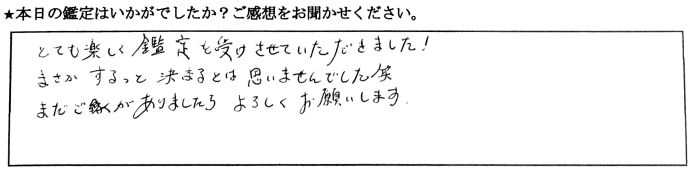 ★本日の鑑定はいかがでしたか？ご感想をお聞かせください。
とても楽しく鑑定を受けさせていただきました！
まさかするっと決まるとは思いませんでした笑
まだご縁がありましたらよろしくお願いします.